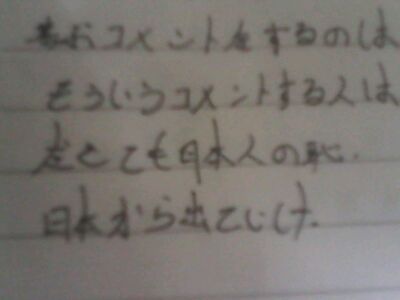 コメントをするのは
そういうコメントする人は
とても日本人の恥.
日本から出ていけ.